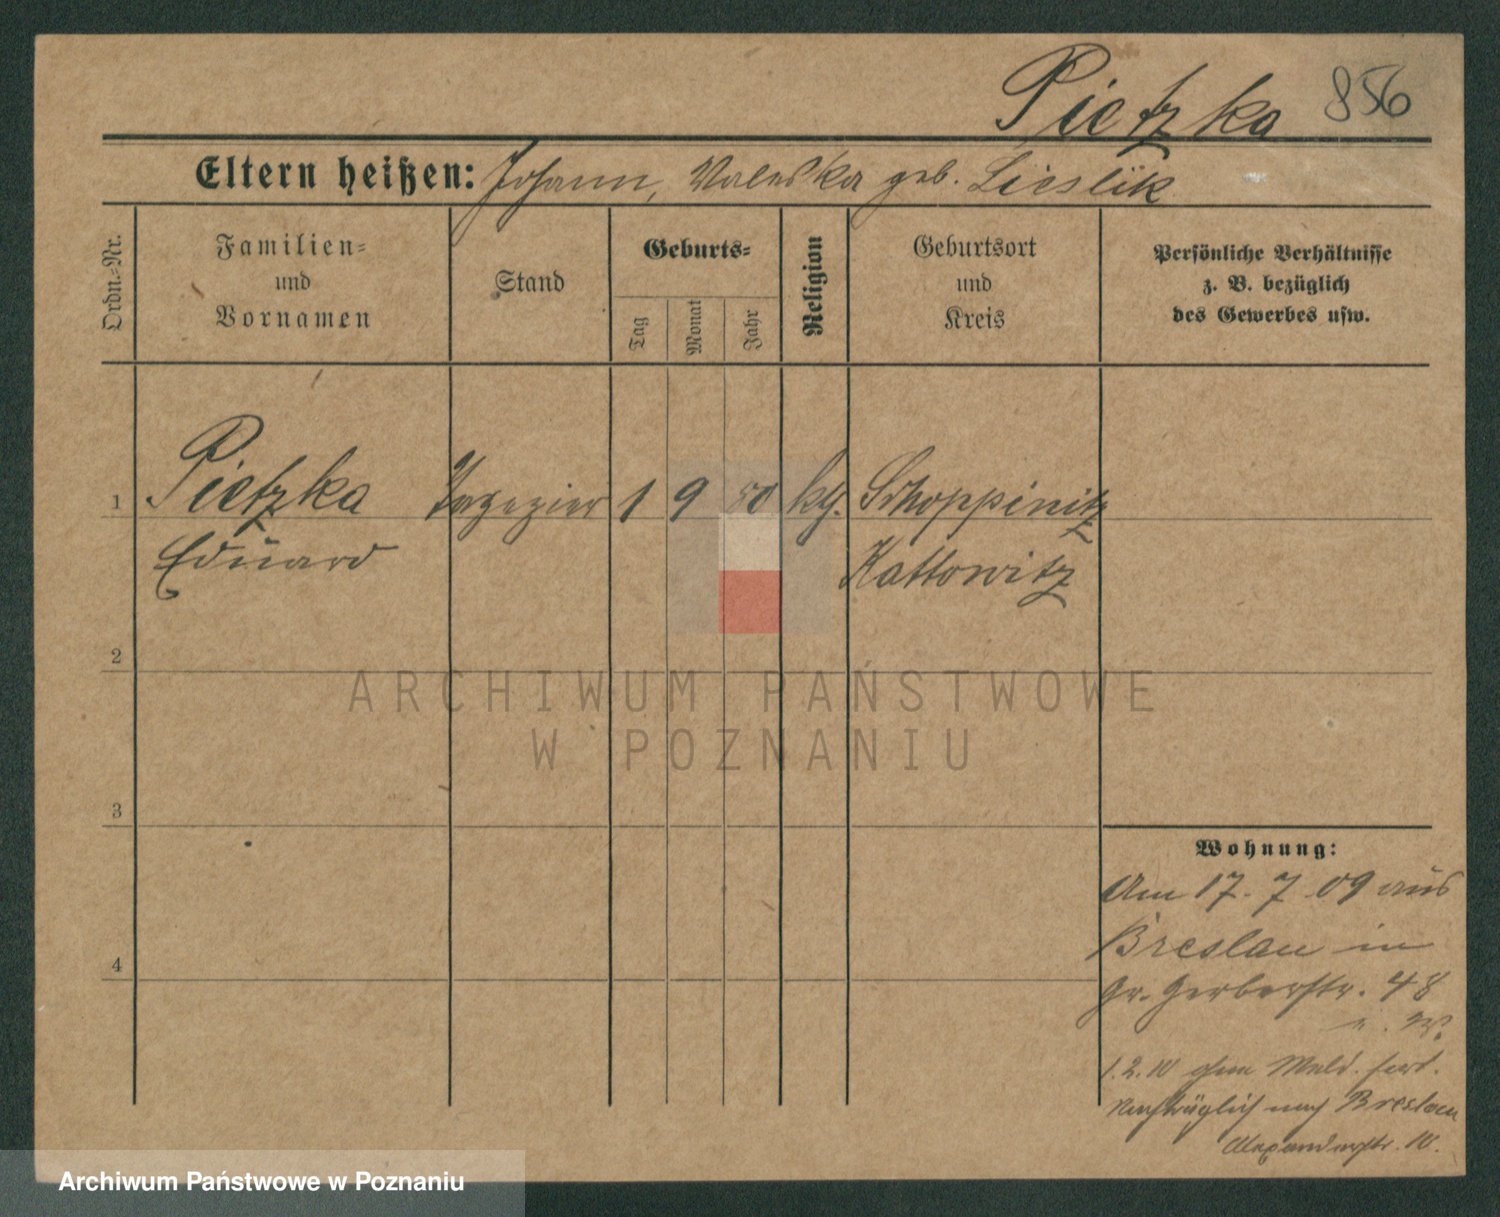 Pietzka 856
Eltern heißen: Johann, Valeska geb. Cieslik
Ordn.-Nr.
Familien-
und
Vornamen
Stand
Geburts-
Tag
Monat
Jahr
Religion
Geburtsort
und
Kreis
Persönliche Verhältnisse
z. B. bezüglich
des Gewerbes usw.
1 Pietzka Tapezier 1 9 50 kth. Schoppinitz
Eduard Kattowitz
2
ARCHIWUM PAŃSTWOWE
W POZNANIU
3
4
Wohnung:
Am 17. 7 09 aus
Breslau in
Gr. Gerberstr. 48
1.2.10 ohne Meld. fort.
nachträglich nach Breslau
Alexanderstr. 10.
Archiwum Państwowe w Poznaniu